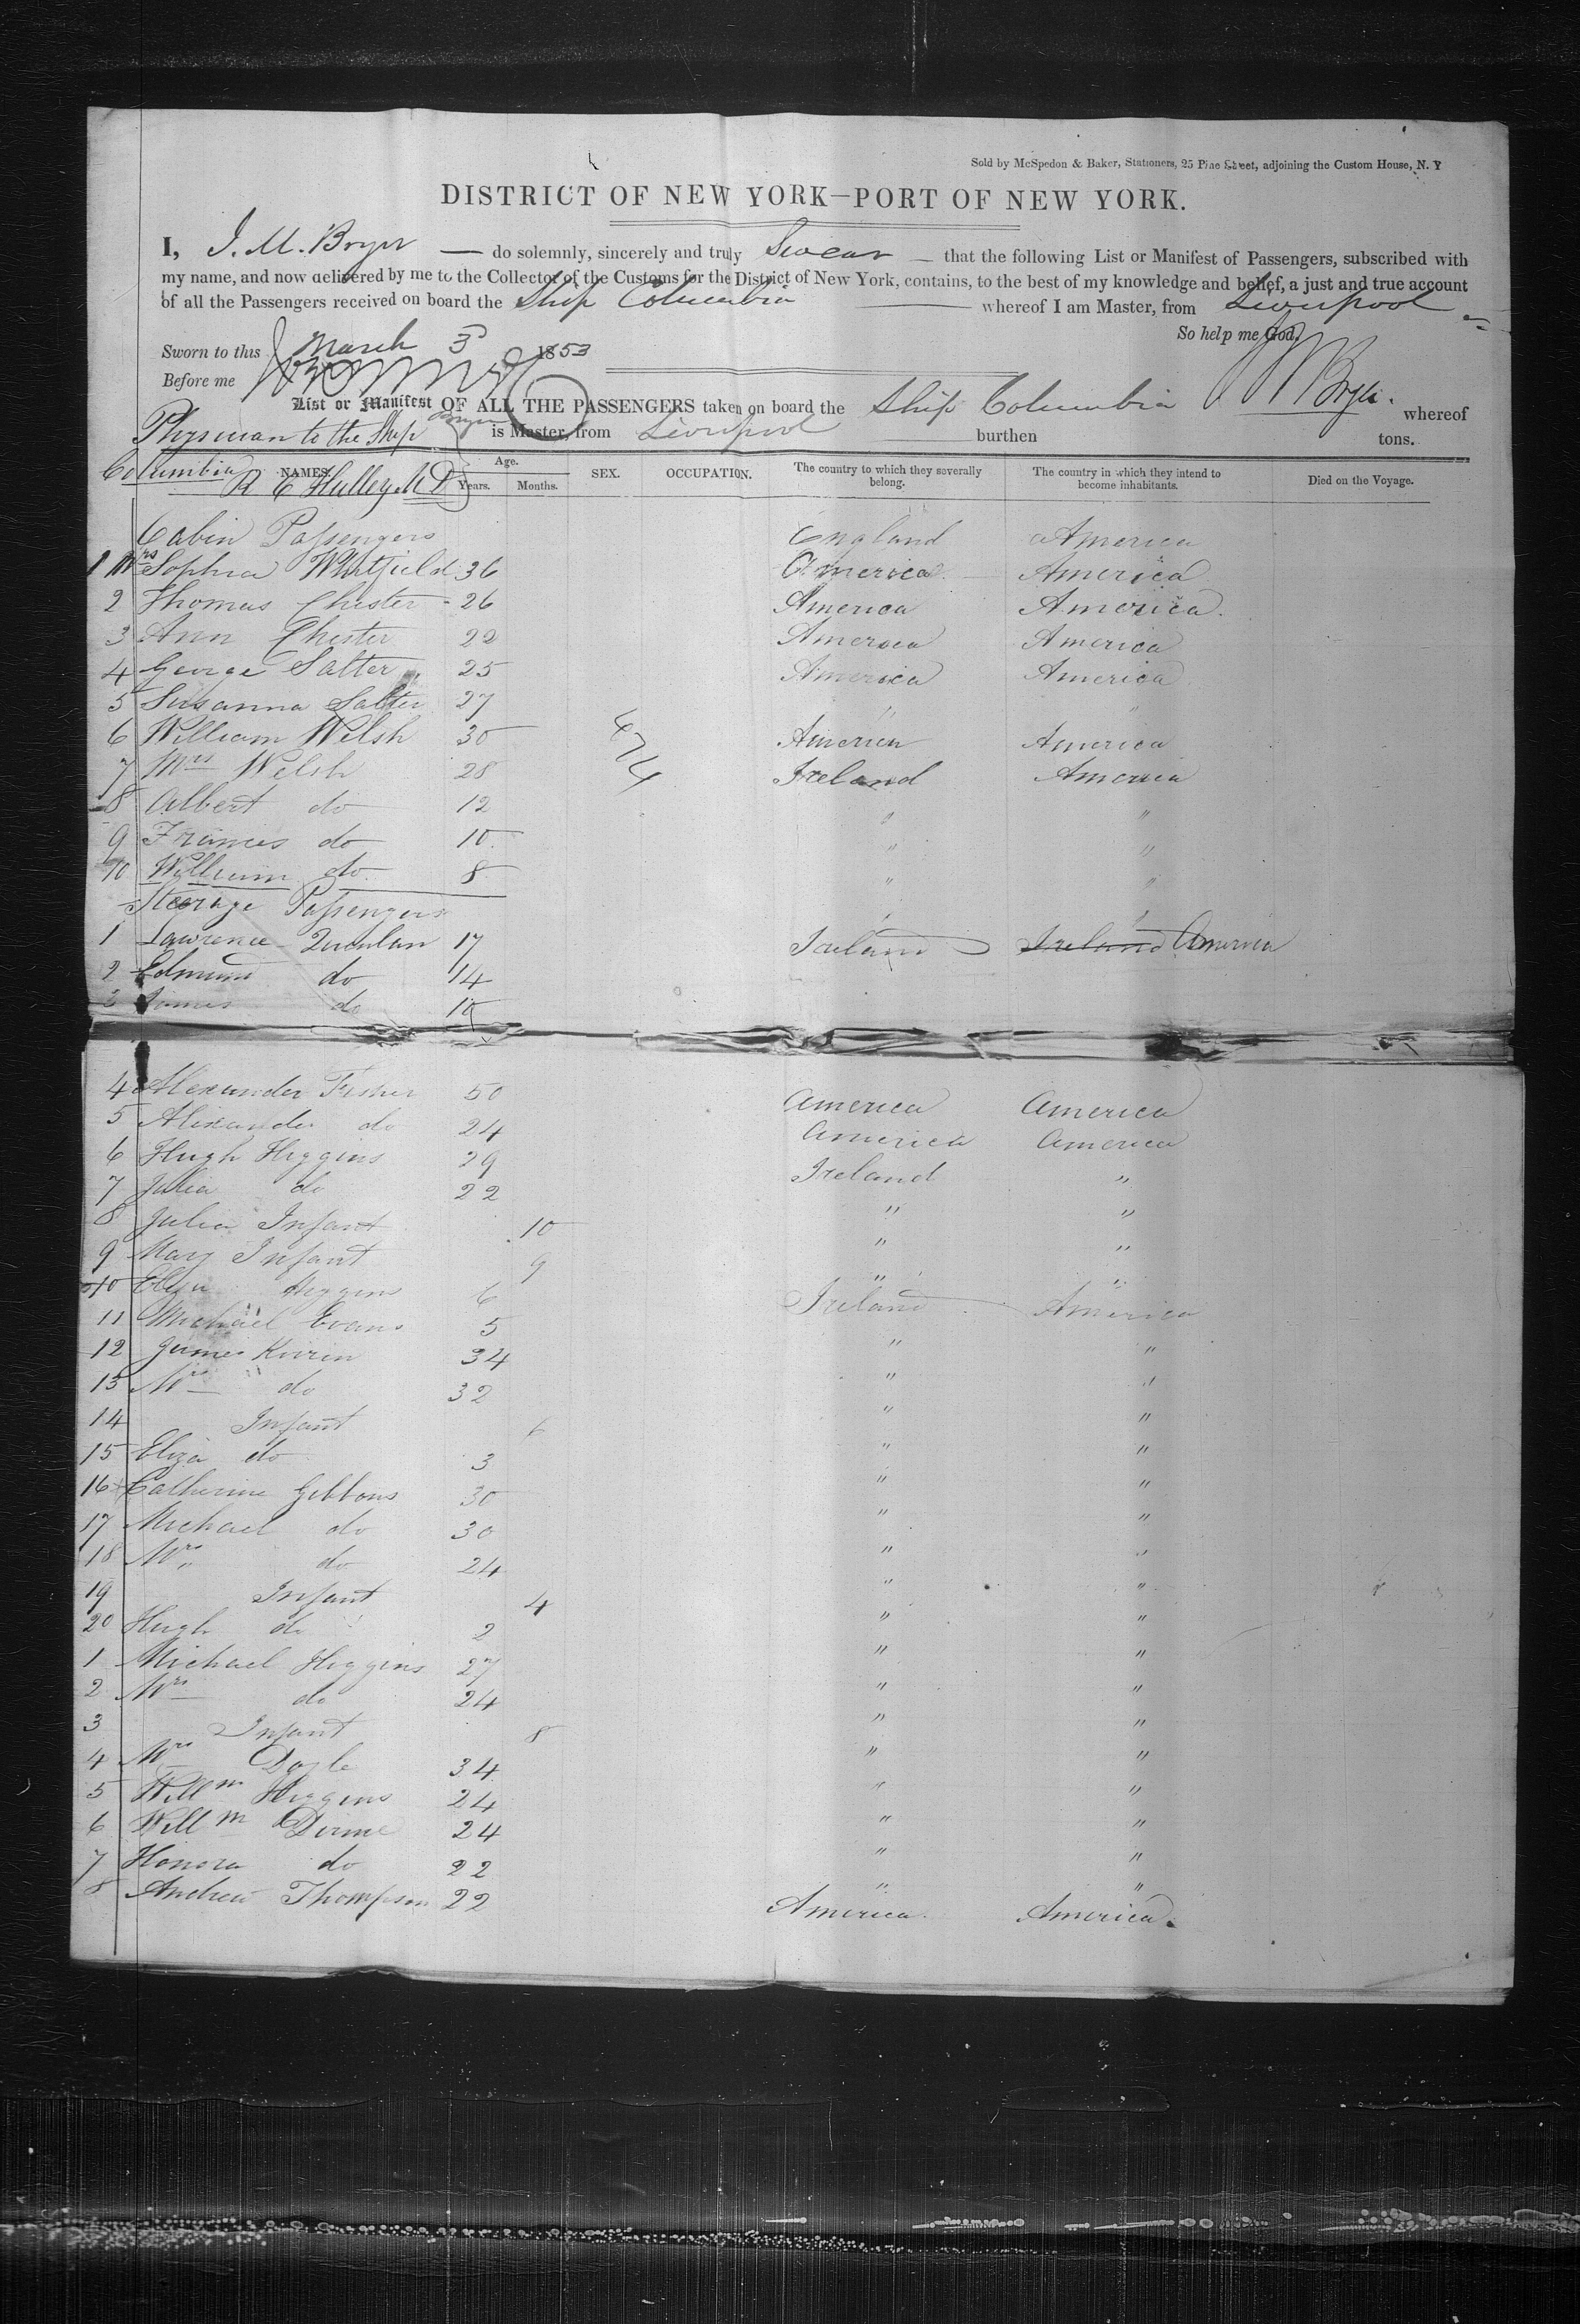 Sold by McSpedon & Baker, Stationers, 25 Pine Street, adjoining the Custom House, N. Y
DISTRICT OF NEW YORK—PORT OF NEW YORK.
I, J. M. Bryer — do solemnly, sincerely and truly Swear — that the following List or Manifest of Passengers, subscribed with
my name, and now delivered by me to the Collector of the Customs for the District of New York, contains, to the best of my knowledge and belief, a just and true account
of all the Passengers received on board the Ship Columbia whereof I am Master, from Liverpool
So help me God.
Sworn to this March 3 1853
Before me
J M Bryer.
List or Manifest OF ALL THE PASSENGERS taken on board the Ship Columbia whereof
Physician to the Ship Bryer is Master, from Liverpool burthen tons.
Columbia R E Hulley M D
NAMES. Age. Years. Months. SEX. OCCUPATION. The country to which they severally belong. The country in which they intend to become inhabitants. Died on the Voyage.
Cabin Passengers England America
1 Mrs Sophia Whitfield 36 America America
2 Thomas Chester 26 America America.
3 Ann Chester 22 America America
4 George Salter 25 America America
5 Susanna Salter 27 " "
6 William Welsh 30 America America
7 Mrs Welsh 28 Ireland America
474
8 Albert do 12 " "
9 Frances do 10. " "
10 William do 8 " "
Steerage Passengers
1 Lawrence Quinlan 17 Ireland Ireland America
2 Edmund do 14
3 James do 10
4 Alexander Fisher 50 America America
5 Alexander do 24 America America
6 Hugh Higgins 29 Ireland "
7 Julia do 22 " "
8 Julia Infant 10 " "
9 Mary Infant 9 " "
10 Eliza Higgins 6 Ireland America
11 Michael Evans 5 " "
12 James Kivren 34 " "
13 Mrs do 32 " "
14 Infant 6 " "
15 Eliza do 3 " "
16 Catherine Gibbons 30 " "
17 Michael do 30 " "
18 Mrs do 24 " "
19 Infant 4 " "
20 Hugh do 2 " "
1 Michael Higgins 27 " "
2 Mrs do 24 " "
3 Infant 8 " "
4 Mrs Doyle 34 " "
5 Willm Higgins 24 " "
6 Willm Dirme 24 " "
7 Honora do 22 " "
8 Andrew Thompson 22 America. America.